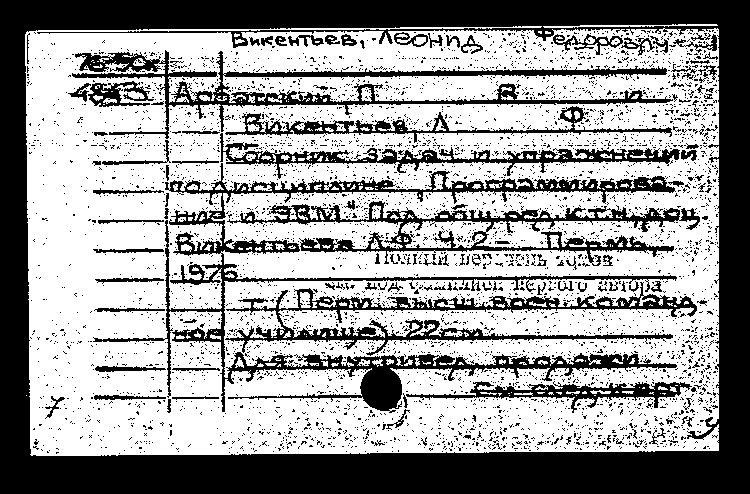 Викентьев, Леонид Федорович
76-50к
4843 Арбатский, П В и
Викентьев, Л Ф
Сборник задач и упражнений
по дисциплине „Программирова-
ние и ЭВМ" Под общ. ред. к.т.н., доц.
Викентьева Л.Ф. Ч. 2 – Пермь,
Полный перечень томов
1976
см. под фамилией первого автора
т. (Перм. высш. воен. команд-
ное училище). 22 см.
Для внутривед. продажи.
См. след. карт
7